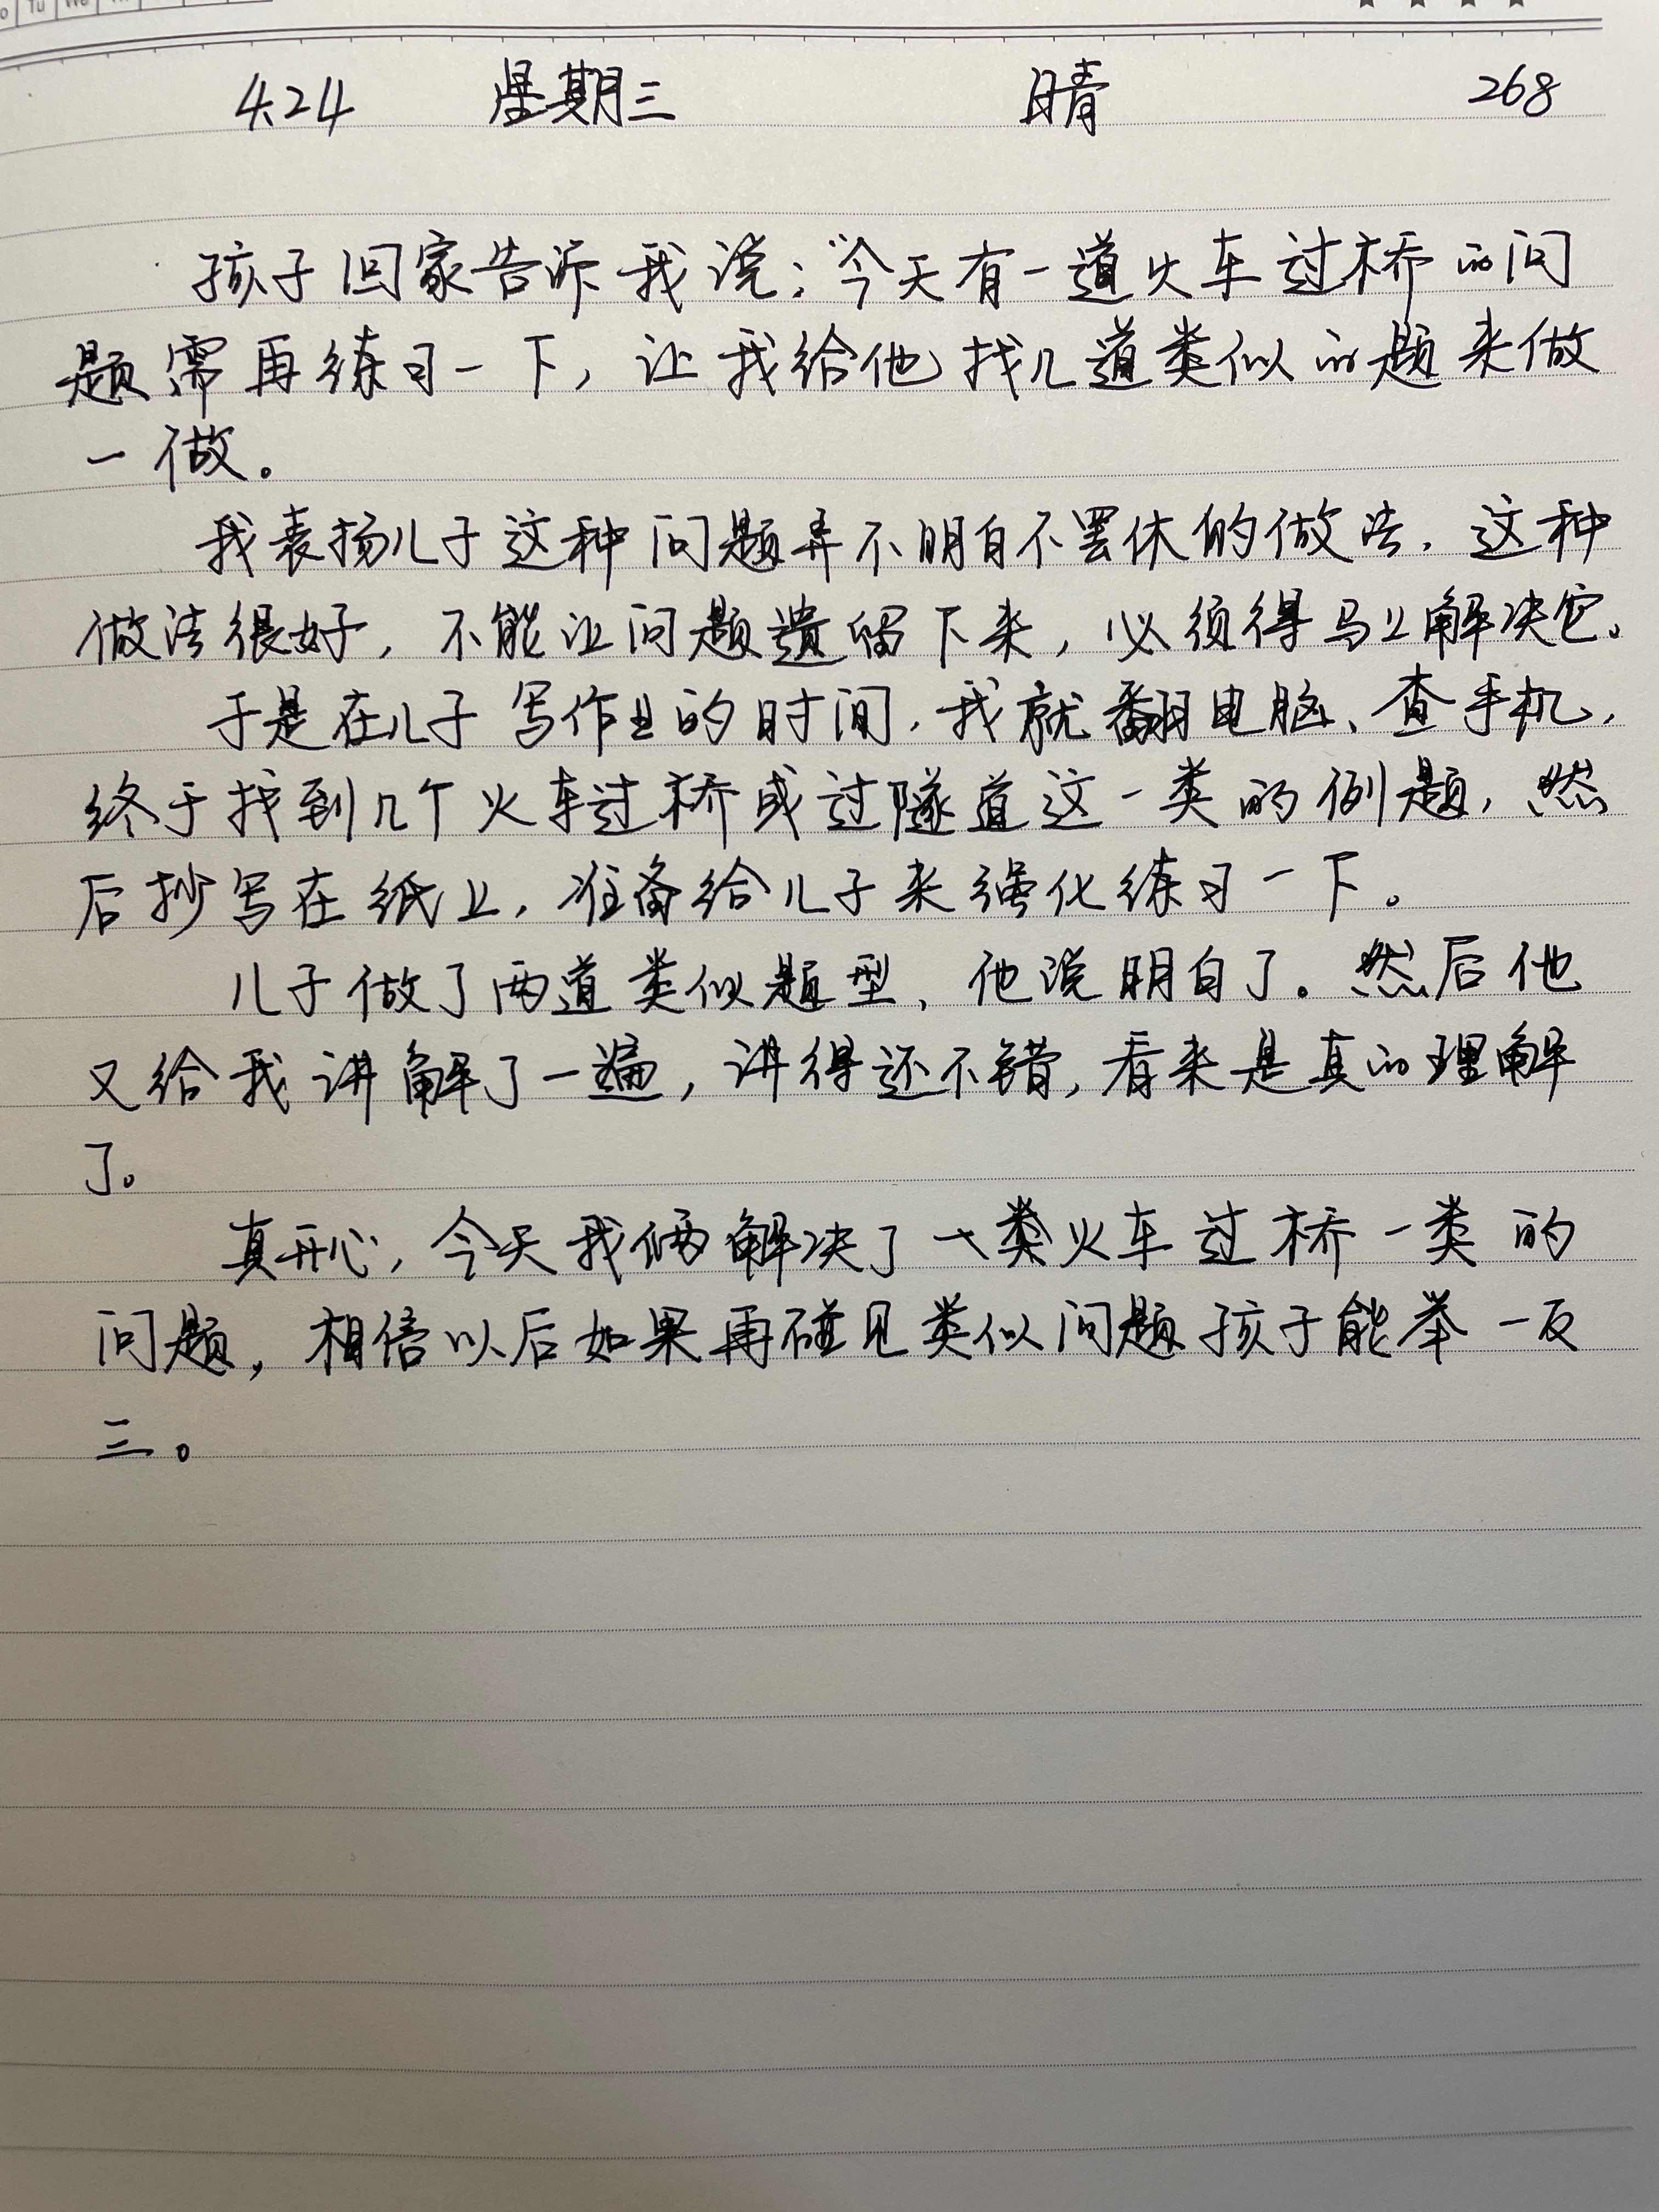 Tu We
4.24 星期三 晴 268
孩子回家告诉我说:“今天有一道火车过桥的问
题需再练习一下,让我给他找几道类似的题来做
一做。
我表扬儿子这种问题弄不明白不罢休的做法,这种
做法很好,不能让问题遗留下来,必须得马上解决它。
于是在儿子写作业的时间,我就翻电脑、查手机,
终于找到几个火车过桥或过隧道这一类的例题,然
后抄写在纸上,准备给儿子来强化练习一下。
儿子做了两道类似题型,他说明白了。然后他
又给我讲解了一遍,讲得还不错,看来是真的理解
了。
真开心,今天我俩解决了一类火车过桥一类的
问题,相信以后如果再碰见类似问题孩子能举一反
三。